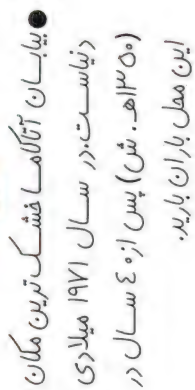 ● بیابان آتاکاما خشک ترین مکان
دنیاست. در سال ۱۹۷۱ میلادی
(۱۳۵۰هـ. ش) پس از ۴۰۰ سال در
این محل باران بارید.